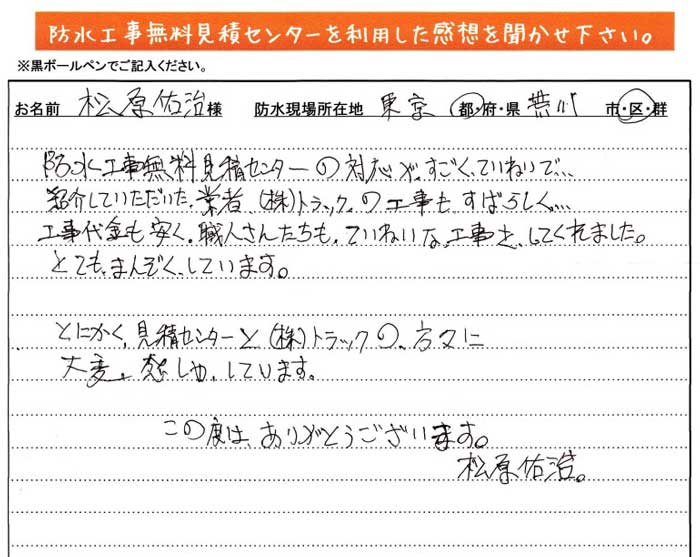 防水工事無料見積センターを利用した感想を聞かせ下さい。
※黒ボールペンでご記入ください。
お名前 松原佑治様 防水現場所在地 東京 都・府・県 荒川 市・区・群
防水工事無料見積センターの対応が、すごく、ていねいで…
紹介していただいた、業者、(株)トラックの工事も、すばらしく…
工事代金も安く、職人さんたちも、ていねいな、工事を、してくれました。
とても、まんぞく、しています。
とにかく、見積センターと(株)トラックの、方々に
大変、感しゃ、しています。
この度は、ありがとうございます。
松原佑治。